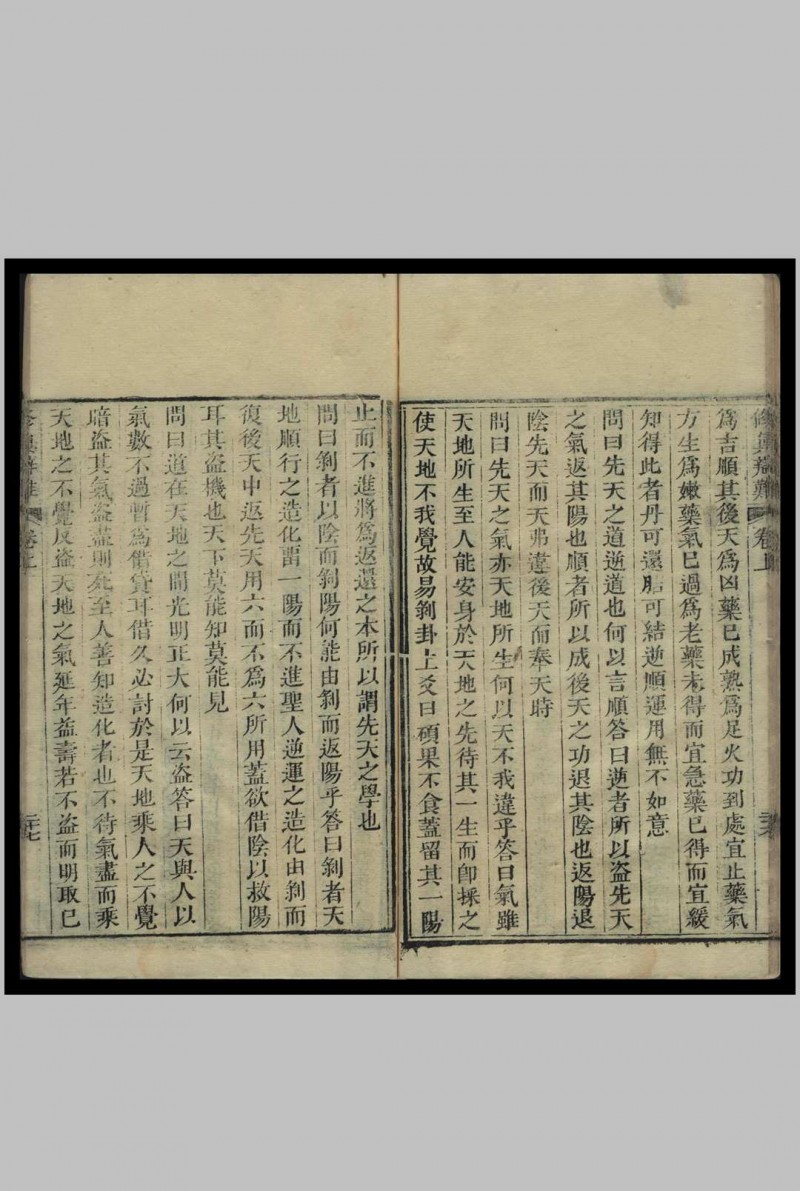 修真辯難 卷上
爲吉順其後天爲凶藥已成熟爲足火功到處宜止藥氣
方生爲嫩藥氣已過爲老藥未得而宜急藥已得而宜緩
知得此者丹可還胎可結逆順運用無不如意
問曰先天之道逆道也何以言順答曰逆者所以盜先天
之氣返其陽也順者所以成後天之功退其陰也返陽退
陰先天而天弗違後天而奉天時
問曰先天之氣亦天地所生何以天不我違乎答曰氣雖
天地所生至人能安身於天地之先待其一生而卽採之
使天地不我覺故易剝卦上爻曰碩果不食蓋留其一陽
止而不進將爲返還之本所以謂先天之學也
問曰剝者以陰而剝陽何能由剝而返陽乎答曰剝者天
地順行之造化謂一陽而不進聖人逆運之造化由剝而
復後天中返先天用六而不爲六所用蓋欲借陰以救陽
耳其盜機也天下莫能知莫能見
問曰道在天地之間光明正大何以云盜答曰天與人以
氣數不過暫爲借貸耳借久必討於是天地乘人之不覺
暗盜其氣盜盡則死至人善知造化者也不待氣盡而乘
天地之不覺反盜天地之氣延年益壽若不盜而明取已
修眞辯難 卷上 二十七